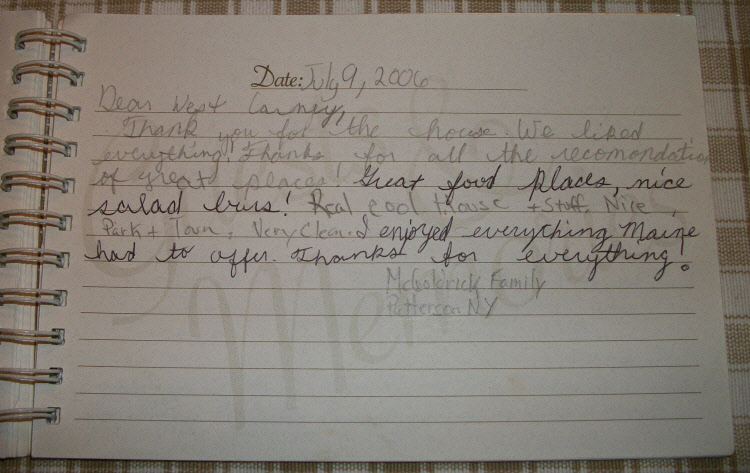 Date: July 9, 2006
Dear West Carney,
Thank you for the house. We liked
everything! Thanks for all the recomondation
of great places! Great food places, nice
salad bars! Real cool House + Stuff. Nice
Park + Town, Very Clean. I enjoyed everything Maine
had to offer. Thanks for everything!
McGoldrick Family
Patterson NY